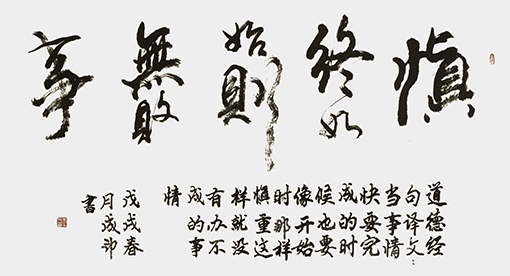 慎
終如
始則
無敗
事
道德经
句译文：
当事情
快要完
成的时
候也要
像开始
时那样
慎重这
样就没
有办不
成的事
情
戊戌春
月成
书